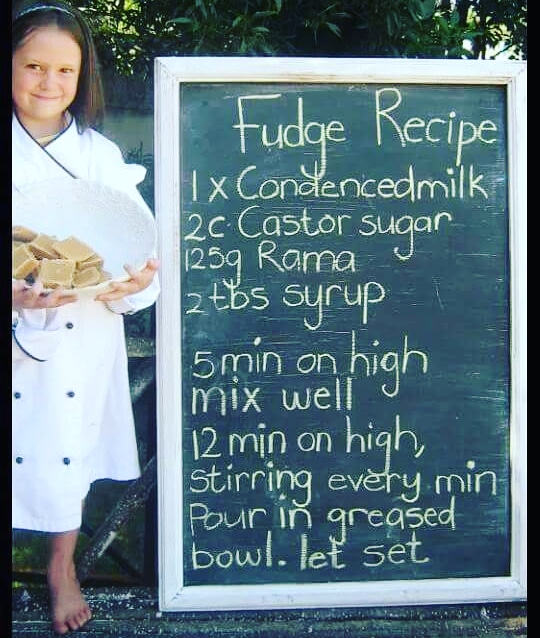 Fudge Recipe
1 x Condencedmilk
2c Castor sugar
125g Rama
2 tbs syrup
5 min on high
mix well
12 min on high,
stirring every min
Pour in greased
bowl. let set